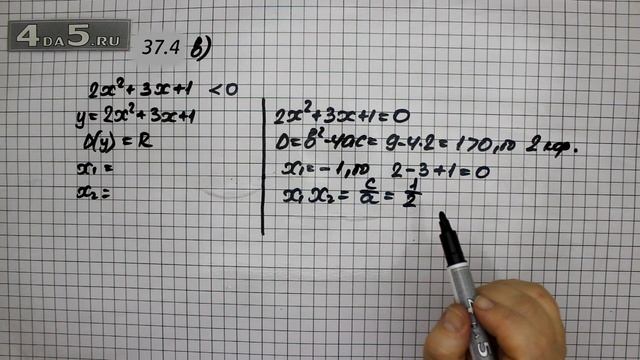 4DA5.RU
37.4 в)
2x² + 3x + 1 < 0
y = 2x² + 3x + 1
D(y) = R
x₁ =
x₂ =
2x² + 3x + 1 = 0
D = b² - 4ac = 9 - 4·2 = 1 > 0, то 2 кор.
x₁ = -1, то 2 - 3 + 1 = 0
x₁ x₂ = c/a = 1/2